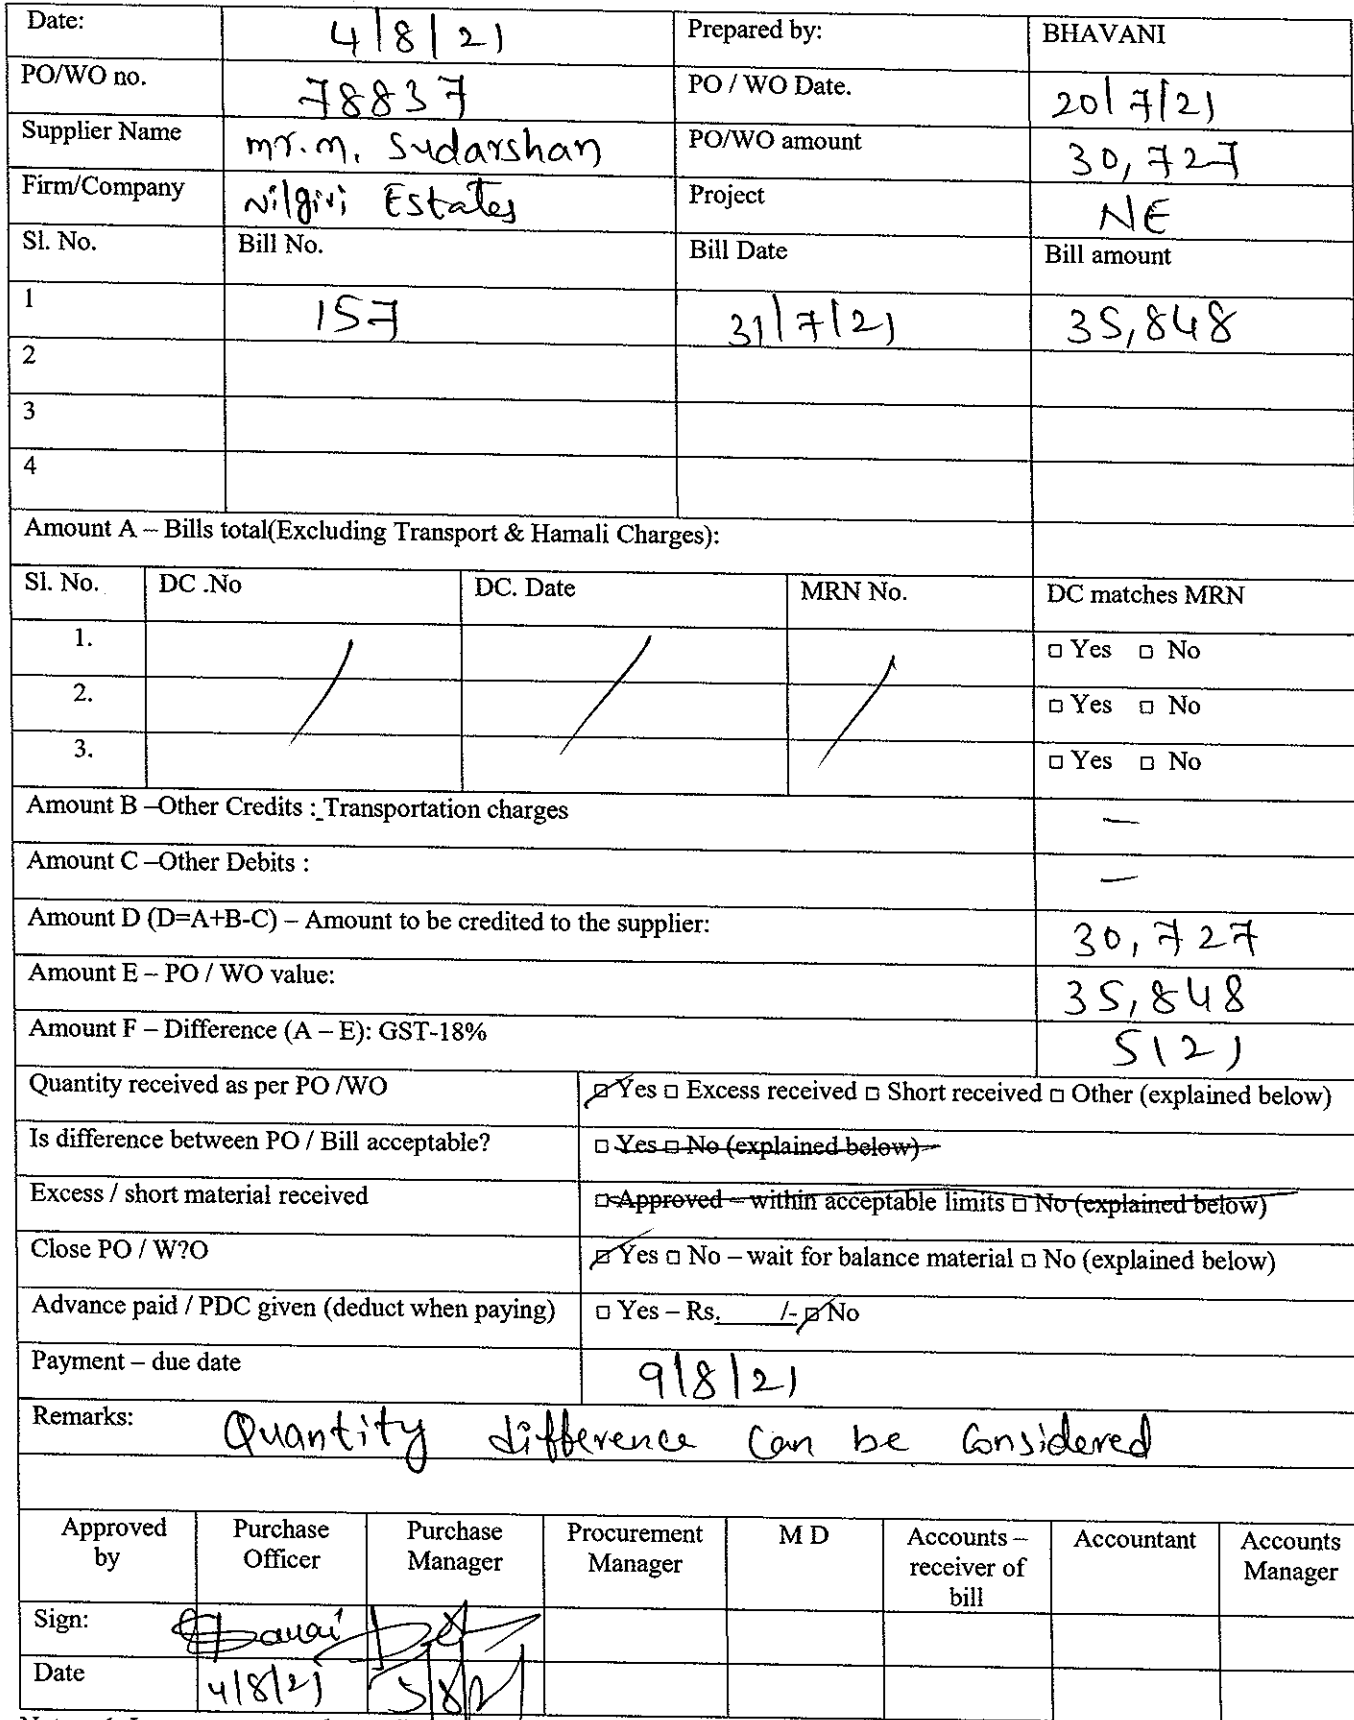 Date: 4/8/21 Prepared by: BHAVANI
PO/WO no. 78837 PO / WO Date. 20/7/21
Supplier Name mr.m. Sudarshan PO/WO amount 30,727
Firm/Company Nilgiri Estates Project NE
Sl. No. Bill No. Bill Date Bill amount
1 157 31/7/21 35,848
2
3
4
Amount A – Bills total(Excluding Transport & Hamali Charges):
Sl. No. DC .No DC. Date MRN No. DC matches MRN
1. □ Yes □ No
2. □ Yes □ No
3. □ Yes □ No
Amount B –Other Credits : Transportation charges —
Amount C –Other Debits : —
Amount D (D=A+B-C) – Amount to be credited to the supplier: 30,727
Amount E – PO / WO value: 35,848
Amount F – Difference (A – E): GST-18% 5121
Quantity received as per PO /WO ☑ Yes □ Excess received □ Short received □ Other (explained below)
Is difference between PO / Bill acceptable? □ Yes □ No (explained below)
Excess / short material received □ Approved – within acceptable limits □ No (explained below)
Close PO / W?O ☑ Yes □ No – wait for balance material □ No (explained below)
Advance paid / PDC given (deduct when paying) □ Yes – Rs. /- ☑ No
Payment – due date 9/8/21
Remarks: Quantity difference can be considered
Approved by Purchase Officer Purchase Manager Procurement Manager M D Accounts – receiver of bill Accountant Accounts Manager
Sign:
Date 4/8/21 5/8/21